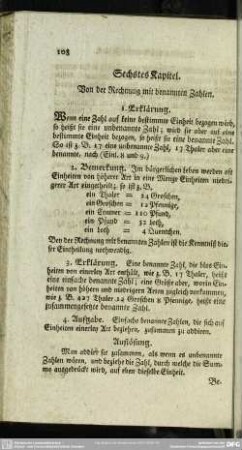 108
Sechstes Kapitel.
Von der Rechnung mit benannten Zahlen.
1. Erklärung.
Wenn eine Zahl auf keine bestimmte Einheit bezogen wird,
so heißt sie eine unbenannte Zahl; wird sie aber auf eine
bestimmte Einheit bezogen, so heißt sie eine benannte Zahl.
So ist z. B. 17 eine unbenannte Zahl, 17 Thaler aber eine
benannte. nach (Einl. 8 und 9.)
2. Bemerkung. Im bürgerlichen Leben werden oft
Einheiten von höherer Art in eine Menge Einheiten niedri-
gerer Art eingetheilt; so ist z. B.
ein Thaler = 24 Groschen,
ein Groschen = 12 Pfennige,
ein Centner = 110 Pfund,
ein Pfund = 32 Loth,
ein Loth = 4 Quentchen.
Bey der Rechnung mit benannten Zahlen ist die Kenntniß die-
ser Eintheilung nothwendig.
3. Erklärung. Eine benannte Zahl, die blos Ein-
heiten von einerley Art enthält, wie z. B. 17 Thaler, heißt
eine einfache benannte Zahl; eine Größe aber, worin Ein-
heiten von höhern und niedrigern Arten zugleich vorkommen,
wie z. B. 227 Thaler 14 Groschen 8 Pfennige, heißt eine
zusammengesetzte benannte Zahl.
4. Aufgabe. Einfache benannte Zahlen, die sich auf
Einheiten einerley Art beziehen, zusammen zu addiren.
Auflösung.
Man addirt sie zusammen, als wenn es unbenannte
Zahlen wären, und beziehe die Zahl, durch welche die Sum-
me ausgedrückt wird, auf eben dieselbe Einheit.
Be-